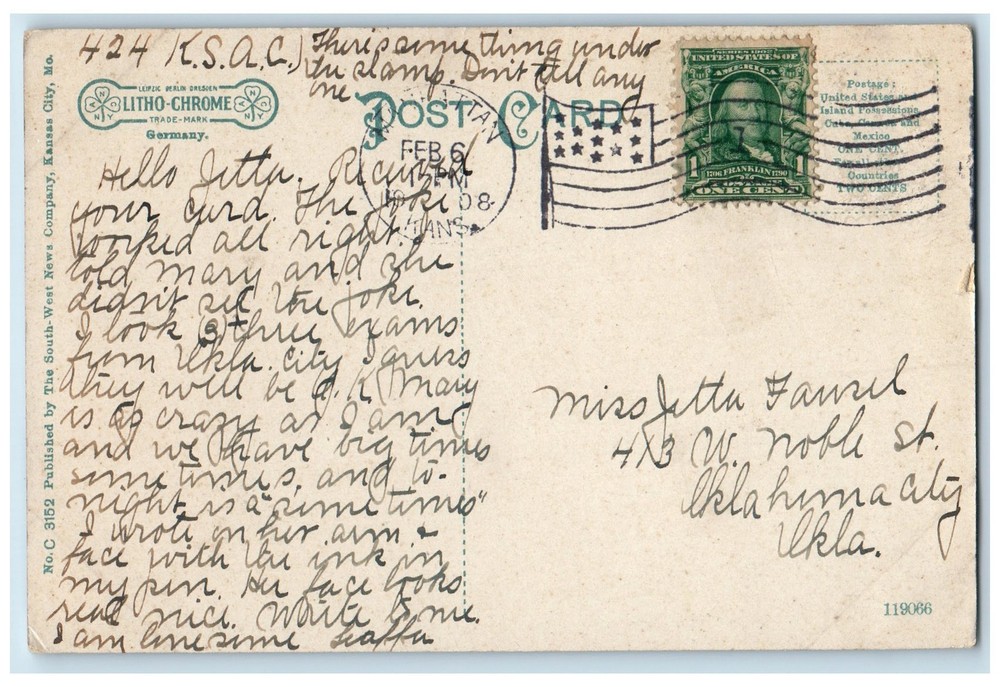 424 K.S.A.C.
There is some thing under
the stamp. Don't tell any
one
LEIPZIG BERLIN DRESDEN
LITHO-CHROME
TRADE-MARK
Germany.
POST CARD
FEB 6
08
KANS.
SERIES 1902
UNITED STATES OF
AMERICA
1706 FRANKLIN 1790
1 1
ONE CENT
Postage:
United States and
Island Possessions
Cuba, Canada and
Mexico
ONE CENT.
Countries
TWO CENTS
Hello Jetta. Received
your card. The joke
worked all right. I
told Mary and she
didn't see the joke.
I took 3 three exams
from Okla. City I guess
they will be O.K. Mary
is as crazy as I am
and we have big times
sometimes, and to-
night is a "sometimes"
I wrote on her arm &
face with the ink in
my pen. Her face looks
real nice. Write to me.
I am lonesome
Miss Jetta Fausel
413 W. Noble St.
Oklahoma City
Okla.
No. C 3152 Published by The South-West News Company, Kansas City, Mo.
119066